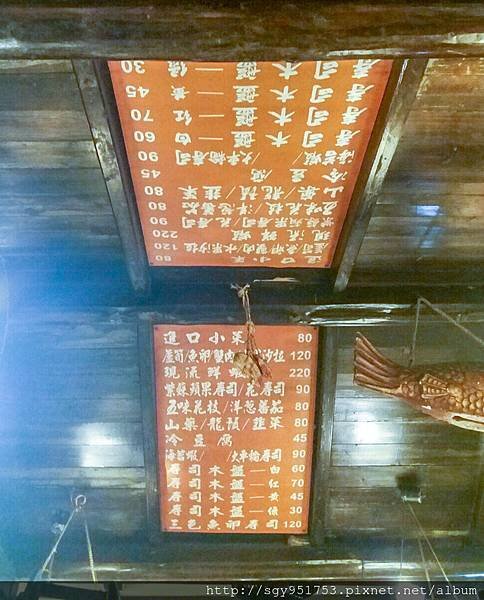 進口小菜 80
蘆筍/魚卵蟹肉 沙拉 120
現流鮮蝦 220
紫蘇蘋果壽司/花壽司 90
五味花枝/洋蔥蕃茄 80
山藥/龍鬚/韮菜 80
冷豆腐 45
海苔蝦/ /火車輪壽司 90
壽司木盤—白 60
壽司木盤—紅 70
壽司木盤—黃 45
壽司木盤—綠 30
三色魚卵壽司 120
進口小菜 80
蘆筍/魚卵蟹肉水果沙拉 120
現流鮮蝦 220
紫蘇蘋果壽司/花壽司 90
五味花枝/洋蔥蕃茄 80
山藥/龍鬚/韮菜 80
冷豆腐 45
海苔蝦/ /火車輪壽司 90
壽司木盤—白 60
壽司木盤—紅 70
壽司木盤—黃 45
壽司木盤—綠 30
http://sgy951753.pixnet.net/album